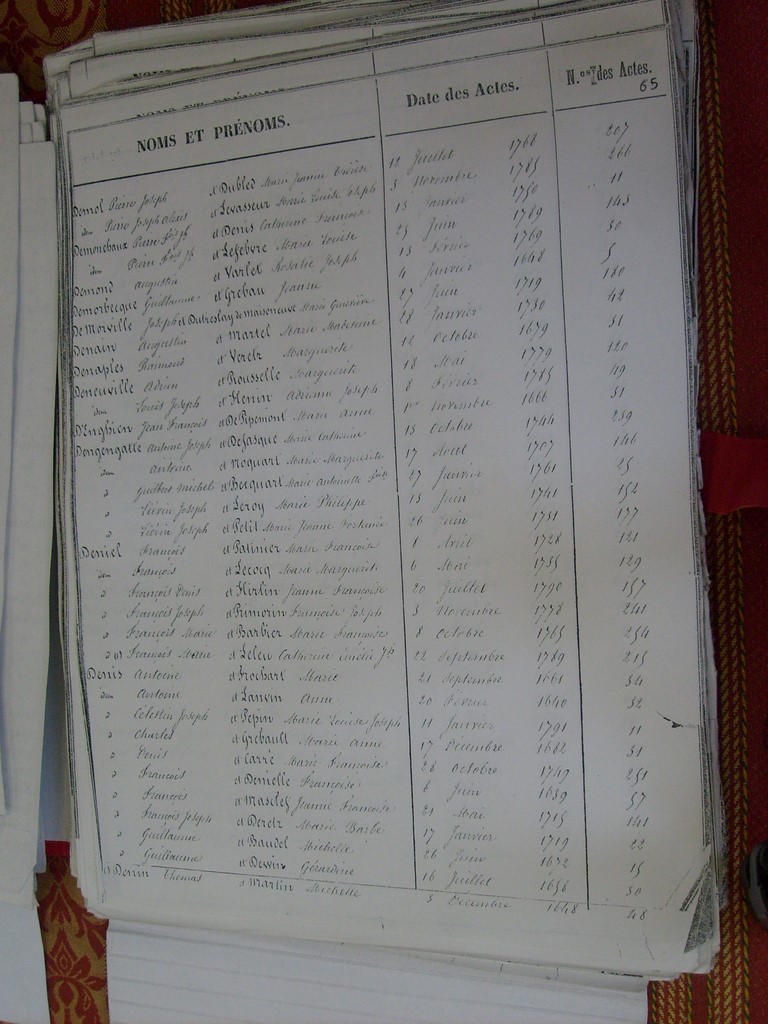 NOMS ET PRÉNOMS. Date des Actes. N.os des Actes.
65
Demol Pierre Joseph et Dubled Marie Jeanne Thérèse 12 Juillet 1768 207
idem Pierre Joseph Alexis et Levasseur Marie Louise Joseph 3 Novembre 1785 266
Demonchaux Pierre et Denis Catherine Françoise 13 Janvier 1750 11
idem Pierre et Lefebvre Marie Louise 25 Juin 1789 143
Demond Augustin et Varlet Rosalie Joseph 13 Février 1769 30
Demorbecque Guillaume et Grebau Jeanne 4 Janvier 1648 5
De Morville Joseph et Dutreslay de maisoneuve Marie Geneviève 27 Juin 1719 180
Denain Augustin et Martel Marie Madeleine 28 Janvier 1730 42
Denaples Raimond et Verelz Marguerite 12 Octobre 1679 31
Deneuville Adrien et Rousselle Marguerite 18 Mai 1779 120
idem Louis Joseph et Henin Adrienne Joseph 8 Février 1785 49
D'Enghien Jean François et De Pipemont Marie Anne 1er Novembre 1666 31
Dengengatte Antoine Joseph et Defasque Marie Catherine 13 Octobre 1744 239
idem Antoine et Moquart Marie Marguerite 17 Avril 1707 146
" Guilbert Michel et Becquart Marie Antoinette 27 Janvier 1761 25
" Liévin Joseph et Leroy Marie Philippe 13 Juin 1741 152
" Liévin Joseph et Petit Marie Jeanne 26 Juin 1751 177
Deniel François et Patinier Marie Françoise 1 Avril 1728 121
idem François et Lecocq Marie Marguerite 6 Mai 1735 129
" François Denis et Hirlin Jeanne Françoise 20 Juillet 1790 157
" François Joseph et Primorin Françoise Joseph 3 Novembre 1778 241
" François Marie et Barbier Marie Françoise 8 Octobre 1765 254
" François Marie et Leleu Catherine 22 Septembre 1789 215
Denis Antoine et Frochart Marie 21 Septembre 1661 34
idem Antoine et Lanvin Anne 20 Février 1640 32
" Célestin Joseph et Pepin Marie Louise Joseph 11 Janvier 1791 11
" Charles et Grebault Marie Anne 17 Décembre 1682 31
" Denis et Carré Marie Françoise 28 Octobre 1749 251
" François et Denielle Françoise 8 Juin 1659 57
" François et Maseles Jeanne Françoise 21 Mai 1715 141
" François Joseph et Derelz Marie Barbe 17 Janvier 1719 22
" Guillaume et Baudel Michelle 26 Juin 1672 15
" Guillaume et Dewin Gérardine 16 Juillet 1656 30
" Denin Thomas et Martin Michelle 5 Décembre 1648 48